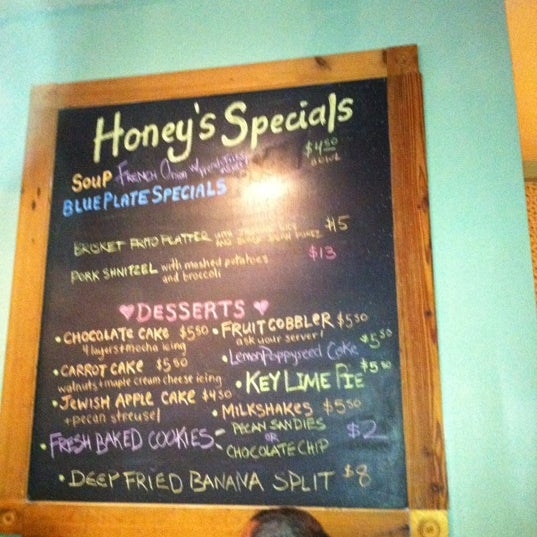 Honey's Specials
SOUP FRENCH Onion $4.50
BOWL
BLUE PLATE SPECIALS
BRISKET FRITO PLATTER WITH $15
AND BLACK
PORK SHNITZEL with mashed potatoes $13
and broccoli
DESSERTS
• CHOCOLATE CAKE $5.50
4 layers + mocha icing
• CARROT CAKE $5.50
walnuts + maple cream cheese icing
• JEWISH APPLE CAKE $4.50
+ pecan streusel
• FRUIT COBBLER $5.50
ask your server!
• Lemon Poppyseed Cake $5.50
• KEY LIME PIE $5.50
• MILKSHAKES $5.50
• FRESH BAKED COOKIES - PECAN SANDIES $2
OR
CHOCOLATE CHIP
• DEEP FRIED BANANA SPLIT $8